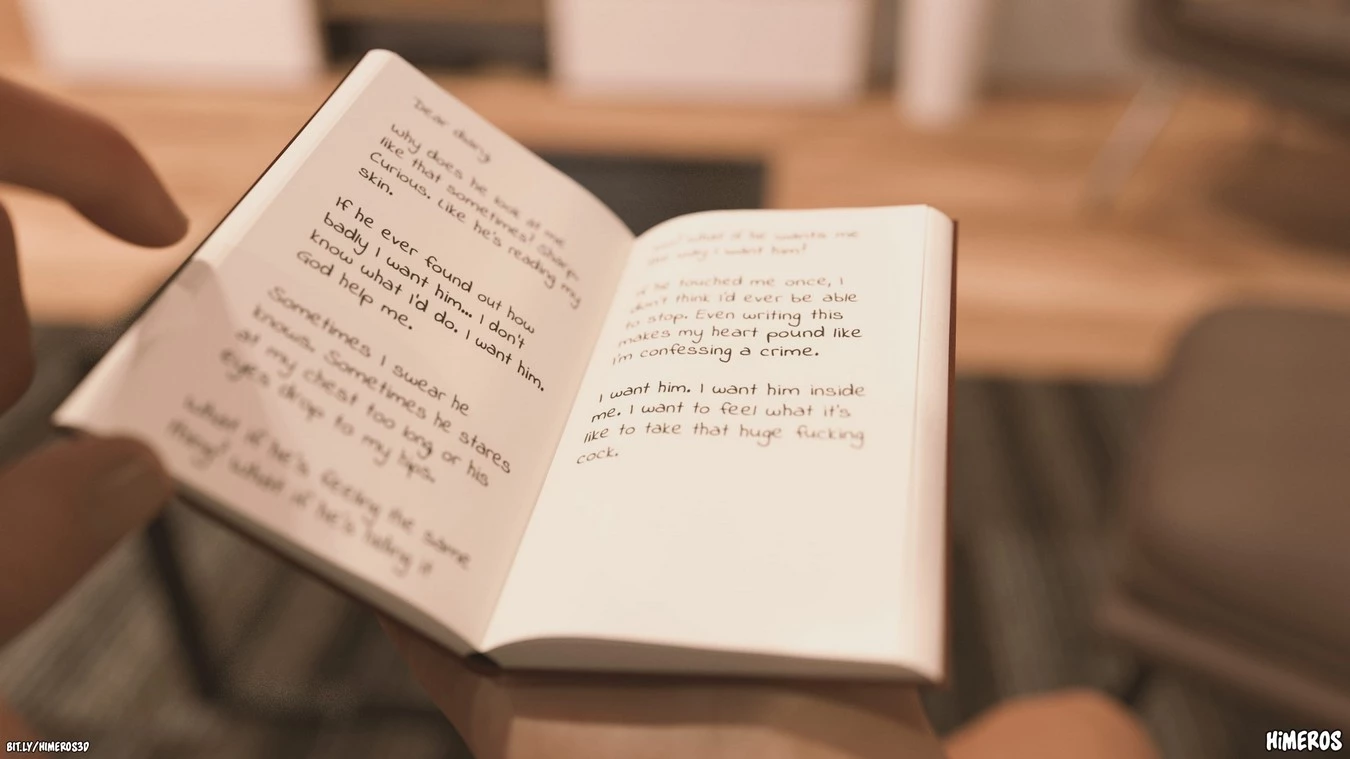 Dear diary
Why does he look at me
like that sometimes? Sharp.
Curious. Like he's reading my
skin.
If he ever found out how
badly I want him... I don't
know what I'd do. I want him.
God help me.
Sometimes I swear he
knows. Sometimes he stares
at my chest too long or his
eyes drop to my lips.
What if he's feeling the same
thing? What if he's hiding it
too? What if he wants me
the way I want him?
If he touched me once, I
don't think I'd ever be able
to stop. Even writing this
makes my heart pound like
I'm confessing a crime.
I want him. I want him inside
me. I want to feel what it's
like to take that huge fucking
cock.
BIT.LY/HIMEROS3D
HiMEROS